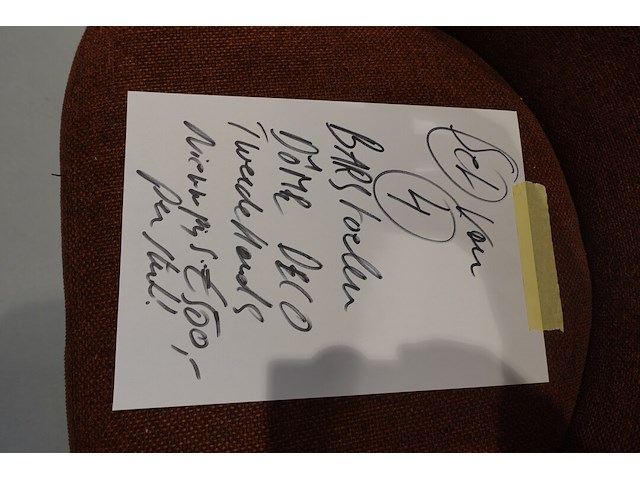 Set van
4
BARStoelen
DÔME DECO
Tweedehands
Nieuwprijs. €500,-
per stuk!